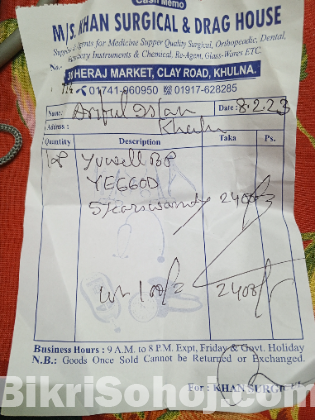 Cash Memo
M/S. KHAN SURGICAL & DRAG HOUSE
Supply Agents for Medicine Supper Quality Surgical, Orthopeadic, Dental,
Instruments & Chemical, Re-Agent, Glass-Wares ETC.
HERAJ MARKET, CLAY ROAD, KHULNA.
01741-960950 01917-628285
Name: Ariful Islam Date: 8.2.23
Adress: Khulna
Quantity Description Taka Ps.
Yuwell BP
YE660D
5 years 2400/-
2400/-
Business Hours : 9 A.M. to 8 P.M. Expt, Friday & Govt. Holiday
N.B.: Goods Once Sold Cannot be Returned or Exchanged.
For : KHAN SURGICAL
BikriSohoj.com